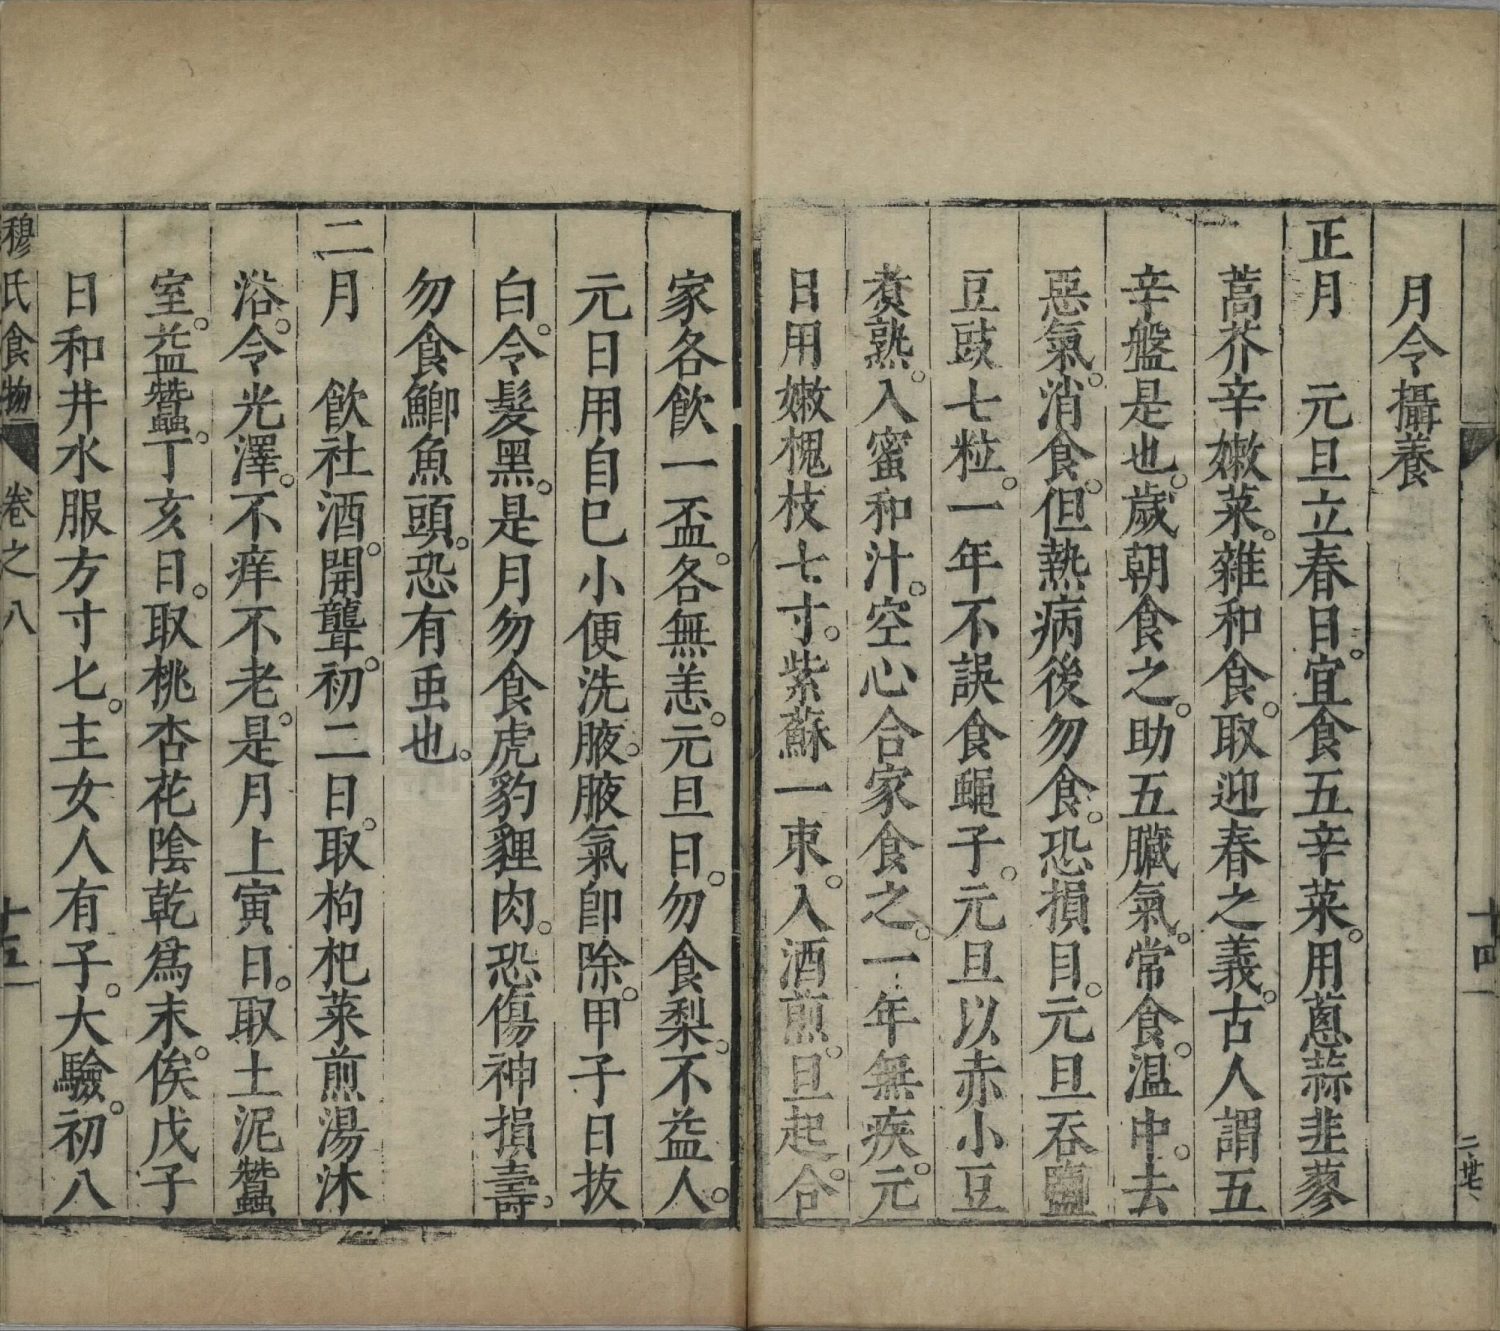 月令攝養
正月　元旦立春日。宜食五辛菜。用蔥蒜韭蓼
蒿芥辛嫩菜。雜和食。取迎春之義。古人謂五
辛盤是也。歲朝食之。助五臟氣。常食。溫中。去
惡氣。消食。但熱病後勿食。恐損目。元旦吞鹽
豆豉七粒。一年不誤食蠅子。元旦以赤小豆
煑熟。入蜜和汁。空心合家食之。一年無疾。元
日用嫩槐枝七寸。紫蘇一束。入酒煎。旦起。合
家各飲一盃。各無恙。元旦日。勿食梨。不益人。
元日用自己小便洗腋。腋氣卽除。甲子日拔
白。令髮黑。是月勿食虎豹貍肉。恐傷神損壽。
勿食鯽魚頭。恐有虫也。
二月　飲社酒。開聾。初二日。取枸杞菜煎湯沐
浴。令光澤。不痒不老。是月上寅日。取土泥蠶
室。益蠶。丁亥日。取桃杏花陰乾爲末。俟戊子
日和井水服方寸匕。主女人有子。大驗。初八
穆氏食物
卷之八
十五
十四
二廿七